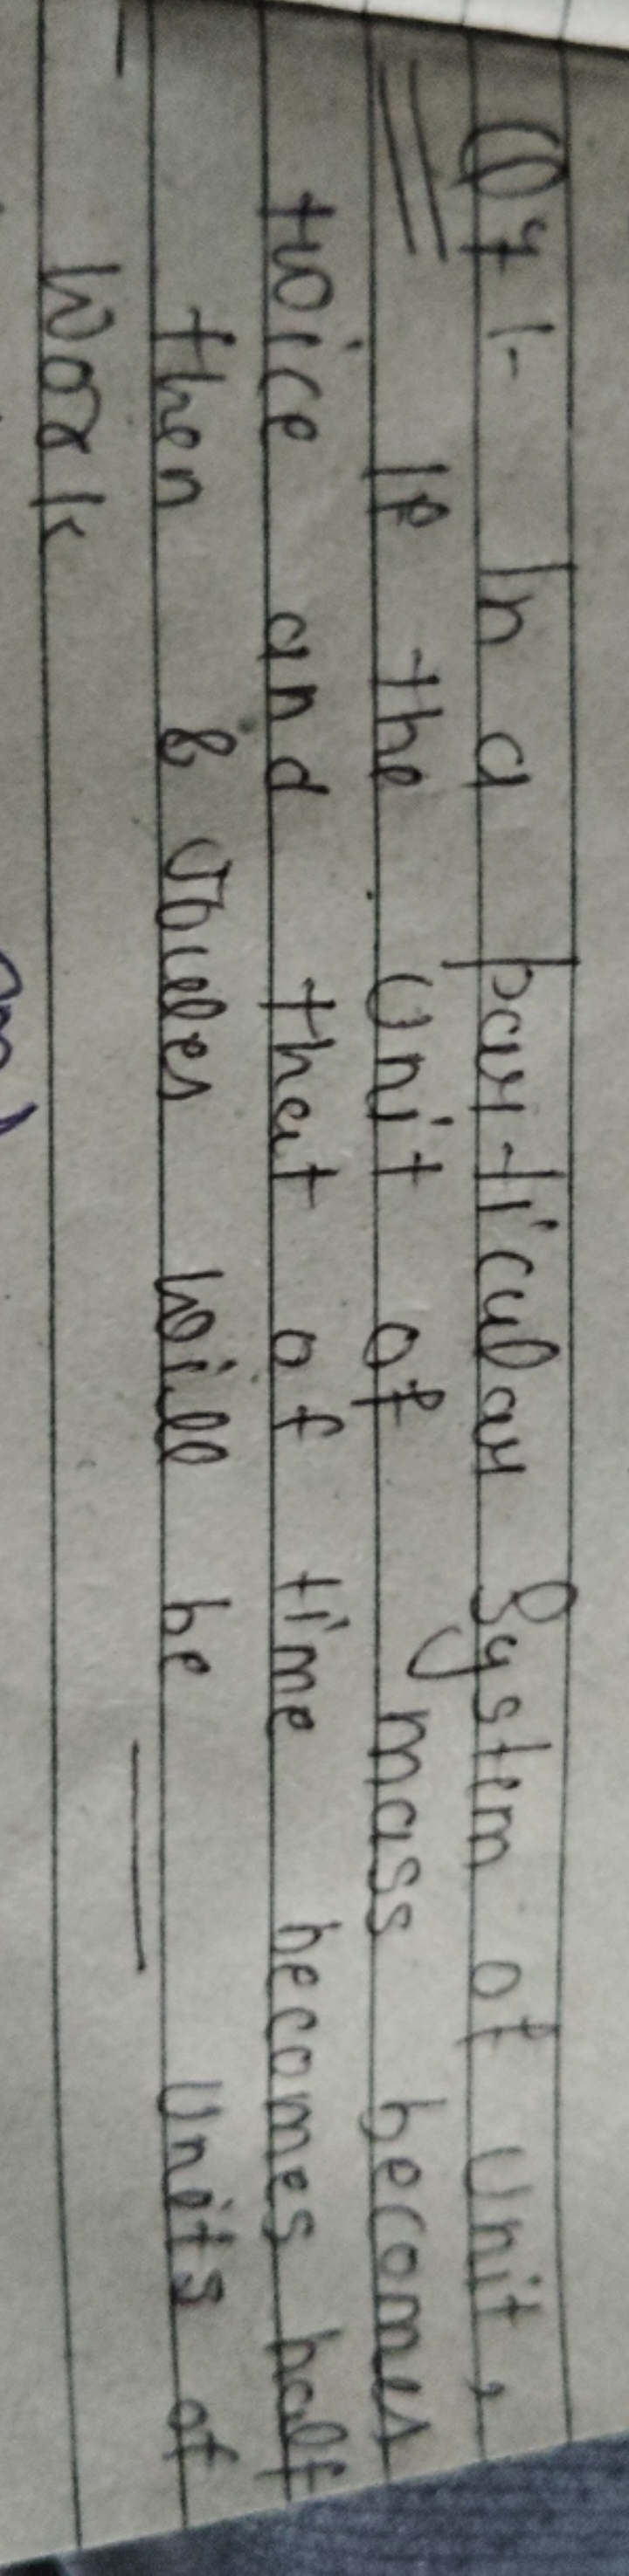 Q7:- In a particular System of Unit,
If the Unit of mass becomes
twice and that of time becomes half
then 8 Joules will be ___ Units of
Work